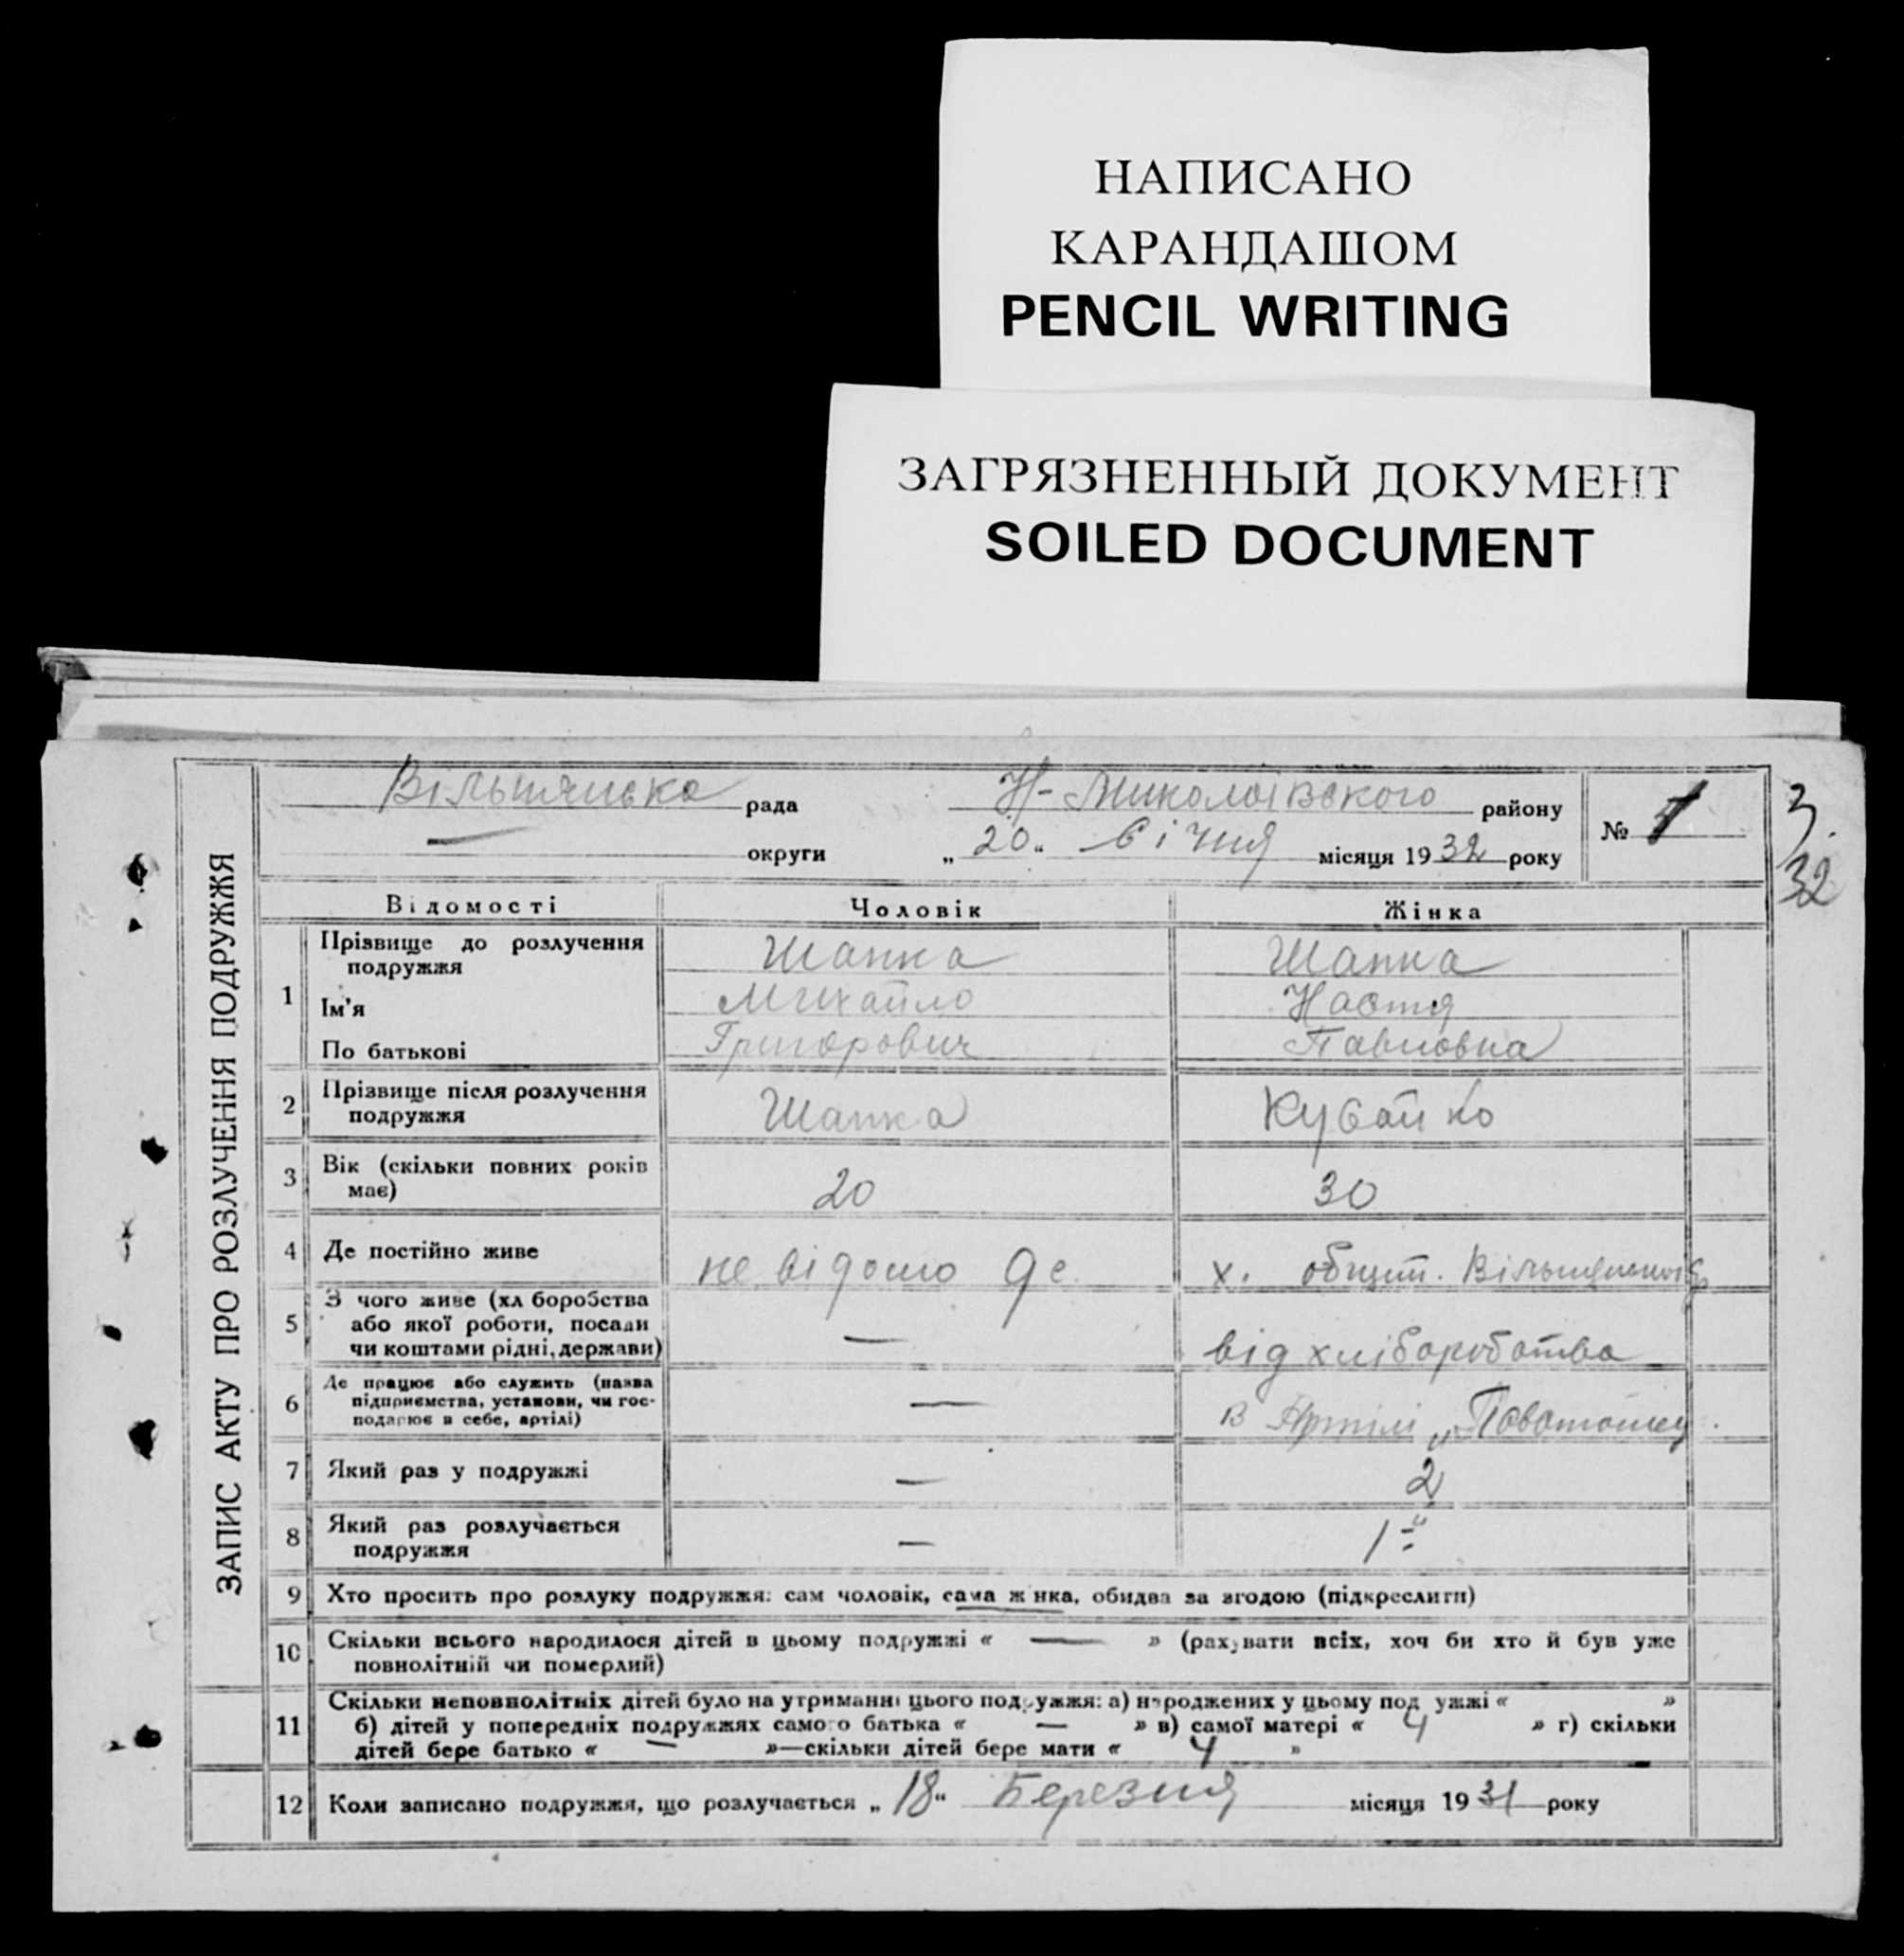 НАПИСАНО
КАРАНДАШОМ
PENCIL WRITING
ЗАГРЯЗНЕННЫЙ ДОКУМЕНТ
SOILED DOCUMENT
ЗАПИС АКТУ ПРО РОЗЛУЧЕННЯ ПОДРУЖЖЯ
Вільнянська рада Н-Миколаївского району
— округи „20“ Січня місяця 1932 року
№ 1
3.
32
Відомості Чоловік Жінка
1 Прізвище до розлучення подружжя Шапка Шапка
Ім'я Михайло Настя
По батькові Григорович Павловна
2 Прізвище після розлучення подружжя Шапка
3 Вік (скільки повних років має) 20 30
4 Де постійно живе не відомо де х. общит.
5 З чого живе (хліборобства або якої роботи, посади чи коштами рідні, держави) — від хліборобства
6 Де працює або служить (назва підприємства, установи, чи господарює в себе, артілі) — в Артілі
7 Який раз у подружжі — 2
8 Який раз розлучається подружжя — 1-й
9 Хто просить про розлуку подружжя: сам чоловік, сама жінка, обидва за згодою (підкреслити)
10 Скільки всього народилося дітей в цьому подружжі « — » (рахувати всіх, хоч би хто й був уже
повнолітній чи померлий)
11 Скільки неповнолітніх дітей було на утриманні цього подружжя: а) народжених у цьому подружжі « »
б) дітей у попередніх подружжях самого батька « — » в) самої матері « 4 » г) скільки
дітей бере батько « — »—скільки дітей бере мати « 4 »
12 Коли записано подружжя, що розлучається „18“ Березня місяця 1931 року